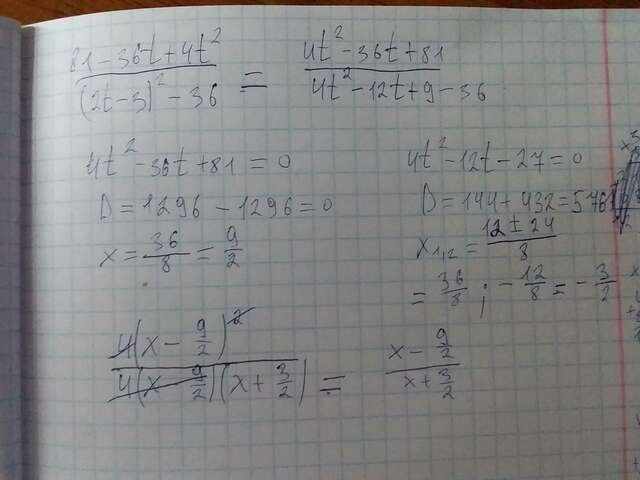 81 - 36t + 4t² / (2t - 3)² - 36 = 4t² - 36t + 81 / 4t² - 12t + 9 - 36
4t² - 36t + 81 = 0
D = 1296 - 1296 = 0
x = 36/8 = 9/2
4t² - 12t - 27 = 0
D = 144 + 432 = 576
x₁,₂ = 12 ± 24 / 8
= 36/8 ; - 12/8 = - 3/2
4(x - 9/2)² / 4(x - 9/2)(x + 3/2) = x - 9/2 / x + 3/2